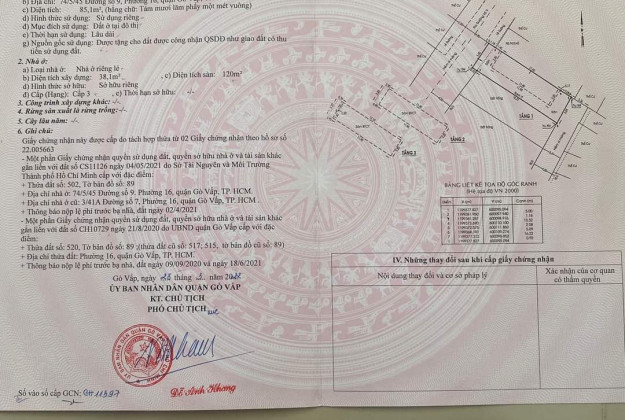 b) Địa chỉ: 74/5/45 Đường số 9, Phường 16, quận Gò Vấp, TP.
c) Diện tích: 85,1m², (bằng chữ: Tám mươi lăm phẩy một mét vuông)
d) Hình thức sử dụng: Sử dụng riêng
đ) Mục đích sử dụng: Đất ở tại đô thị
e) Thời hạn sử dụng: Lâu dài
g) Nguồn gốc sử dụng: Được tặng cho đất được công nhận QSDĐ như giao đất có thu
tiền sử dụng đất.
2. Nhà ở:
a) Loại nhà ở: Nhà ở riêng lẻ
b) Diện tích xây dựng: 38,1m², c) Diện tích sàn: 120m²
d) Hình thức sở hữu: Sở hữu riêng
đ) Cấp (Hạng): Cấp 3 , e) Thời hạn sở hữu: -/-
3. Công trình xây dựng khác: -/-
4. Rừng sản xuất là rừng trồng: -/-
5. Cây lâu năm: -/-
6. Ghi chú:
Giấy chứng nhận này được cấp do tách hợp thửa từ 02 Giấy chứng nhận theo hồ sơ số
22.005663
- Một phần Giấy chứng nhận quyền sử dụng đất, quyền sở hữu nhà ở và tài sản khác
gắn liền với đất số CS11126 ngày 04/05/2021 do Sở Tài Nguyên và Môi Trường
Thành phố Hồ Chí Minh cấp với đặc điểm:
+ Thửa đất số: 502, Tờ bản đồ số: 89
+ Địa chỉ nhà ở: 74/5/45 Đường số 9, Phường 16, quận Gò Vấp, TP. HCM.
+ Địa chỉ nhà ở cũ: 3/41A Đường số 7, Phường 16, quận Gò Vấp, TP. HCM
+ Thông báo nộp lệ phí trước bạ nhà, đất ngày 02/4/2021
- Một phần Giấy chứng nhận quyền sử dụng đất, quyền sở hữu nhà ở và tài sản khác
gắn liền với đất số CH10729 ngày 21/8/2020 do UBND Quận Gò Vấp cấp với đặc
điểm:
+ Thửa đất số: 520, Tờ bản đồ số: 89 (thửa đất cũ số: 517; 515, tờ bản đồ cũ số: 89)
+ Địa chỉ thửa đất: Phường 16, quận Gò Vấp, TP. HCM.
+ Thông báo nộp lệ phí trước bạ nhà, đất ngày 09/09/2020 và ngày 18/6/2021
Gò Vấp, ngày tháng năm
ỦY BAN NHÂN DÂN QUẬN GÒ VẤP
KT. CHỦ TỊCH
PHÓ CHỦ TỊCH
Đỗ Anh Khang
Số vào sổ cấp GCN:
TẦNG 3
TẦNG 2
TẦNG 1
BẢNG LIỆT KÊ TỌA ĐỘ GÓC RANH
(Hệ tọa độ VN 2000)
IV. Những thay đổi sau khi cấp giấy chứng nhận
Nội dung thay đổi và cơ sở pháp lý
Xác nhận của cơ quan
có thẩm quyền